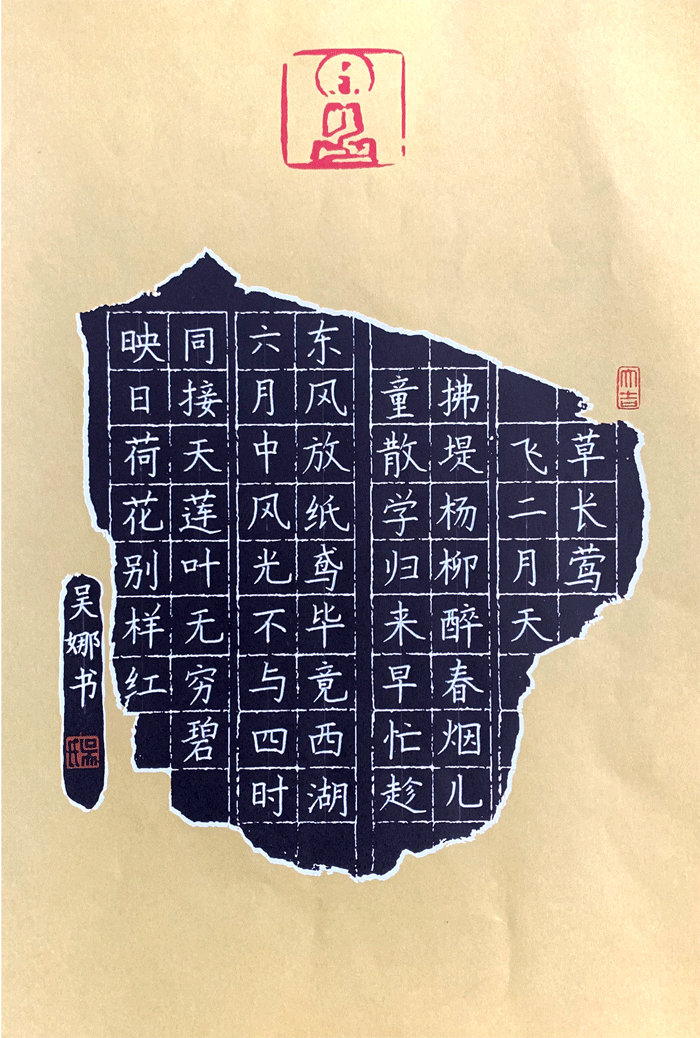 草长莺
飞二月天
拂堤杨柳醉春烟儿
童散学归来早忙趁
东风放纸鸢毕竟西湖
六月中风光不与四时
同接天莲叶无穷碧
映日荷花别样红
吴娜书
大吉
吴氏